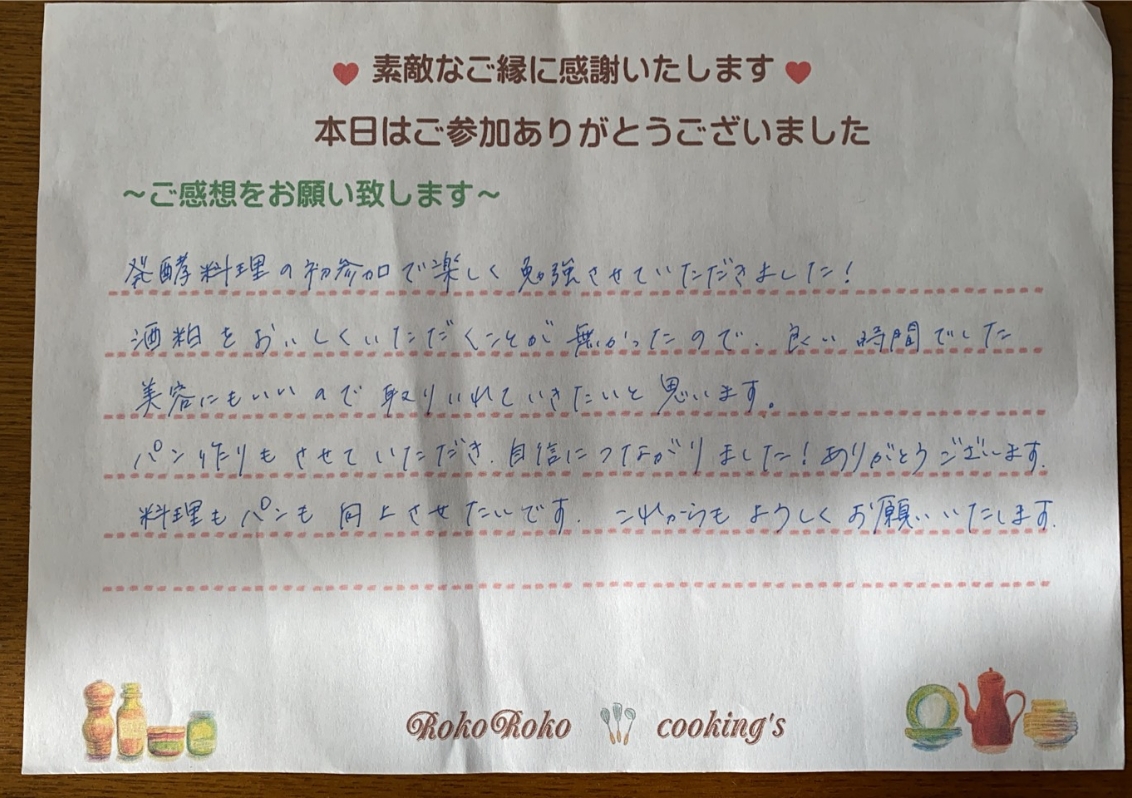 素敵なご縁に感謝いたします
本日はご参加ありがとうございました
～ご感想をお願い致します～
発酵料理の初参加で楽しく勉強させていただきました!
酒粕をおいしくいただくことが無かったので、良い時間でした
美容にもいいので取りいれていきたいと思います。
パン作りもさせていただき、自信につながりました!ありがとうございます。
料理もパンも向上させたいです。これからもよろしくお願いいたします。
RokoRoko cooking's